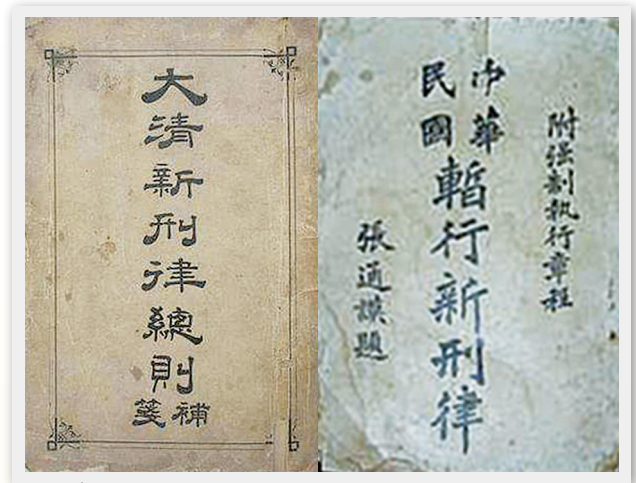 大清新刑律總則
補箋
附强制執行章程
中華
民國
暫行新刑律
張通謨題